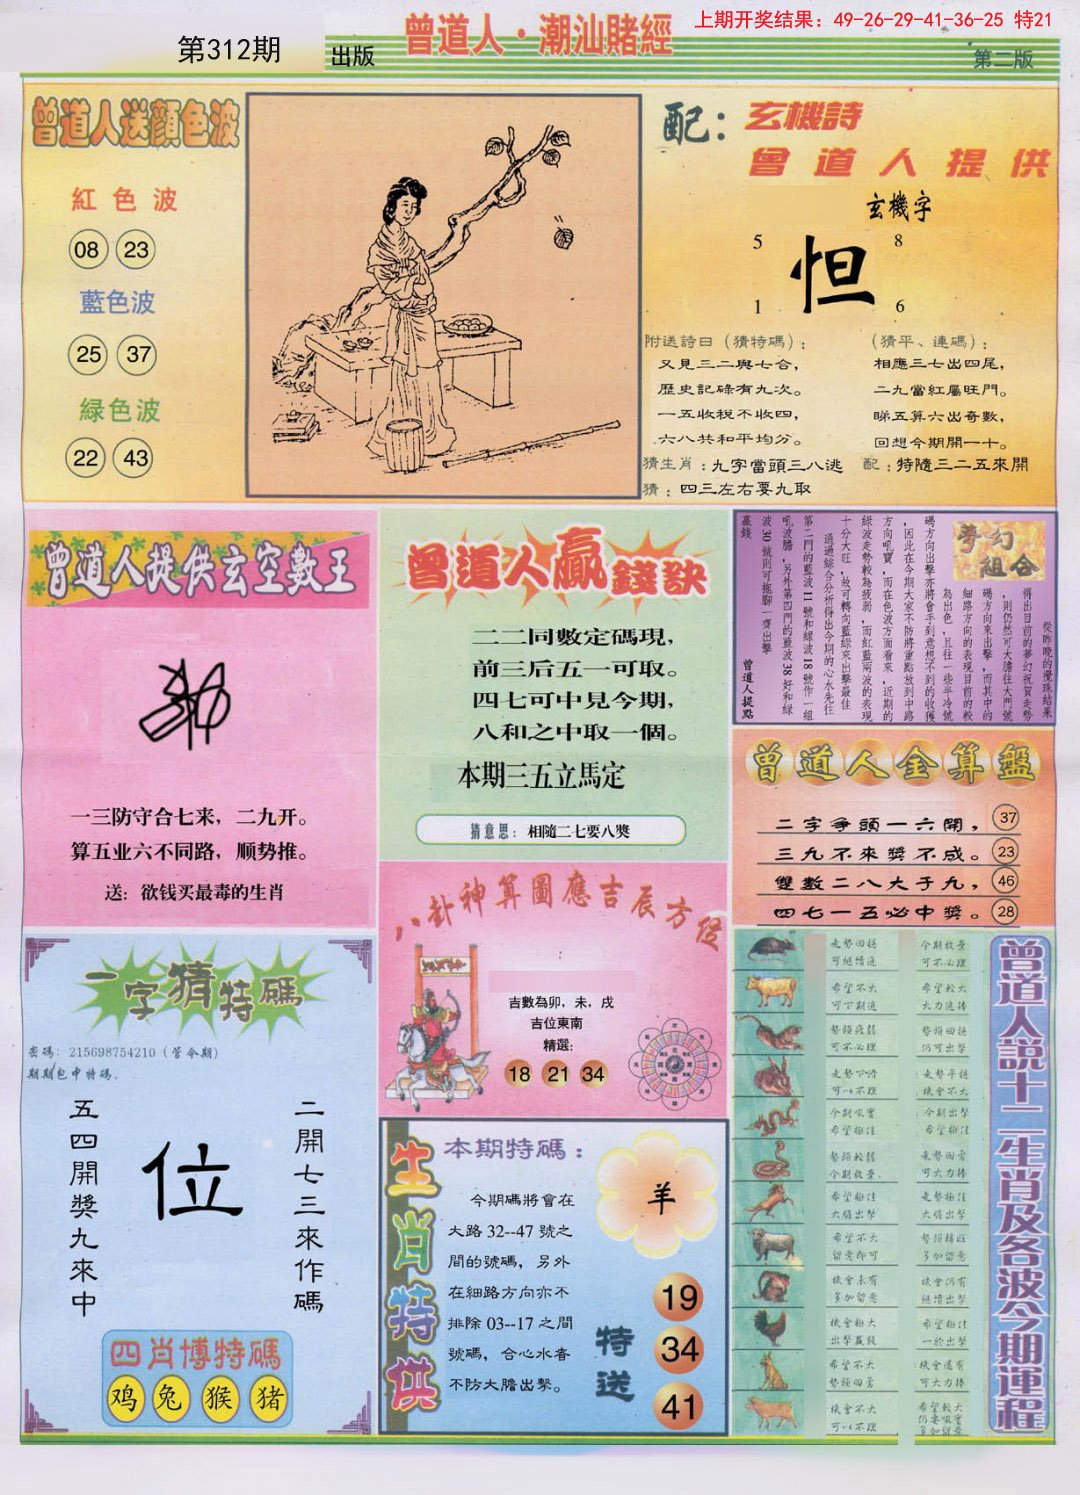 上期开奖结果：49-26-29-41-36-25 特21
第312期
出版
曾道人·潮汕賭經
第二版
曾道人送顏色波
紅色波
08 23
藍色波
25 37
緑色波
22 43
配：玄機詩
曾道人提供
玄機字
5 8
怛
1 6
附送詩曰（猜特碼）；
又見三二與七合，
歷史記碌有九次。
一五收稅不收四，
六八共和平均分。
（猜平、連碼）；
相應三七出四尾，
二九當紅屬旺門。
睇五算六出奇數，
回想今期開一十。
猜生肖：九字當頭三八逃
配：特隨三二五來開
猜：四三左右要九取
曾道人提供玄空數王
一三防守合七来，二九开。
算五业六不同路，顺势推。
送：欲钱买最毒的生肖
曾道人贏錢訣
二二同數定碼現，
前三后五一可取。
四七可中見今期，
八和之中取一個。
本期三五立馬定
猜意思：相隨二七要八獎
夢幻組合
從昨晚的攪珠結果
得出目前的夢幻祝賀走勢
，則仍然可大膽往大門號
碼方向來出擊，而其中的
細路方向的表現目前的較
為出色，且往一些半冷號
碼方向出擊亦將會手到意想不到的收獲
，因此在今期大家不防將重點放到中路
方向吼寶，而在色波方面看來，近期的
綠波走勢較為疲弱，而紅藍兩波的表現
十分大旺，故可轉向藍綠來出擊最佳
通過綜合分析得出今期的心水先往
第二門的藍波11號和綠波18號作一組
吼波膽，另外第四門的藍波38好和綠
波30號則可拖腳一齊出擊
贏錢
曾道人提點
曾道人金算盤
二字爭頭一六開， 37
三九不來獎不成。 23
雙數二八大于九， 46
四七一五必中獎。 28
八卦神算圖應吉辰方位
吉數為卯，未，戌
吉位東南
精選：
18 21 34
一字猜特碼
密碼：215698754210（管今期）
期期包中特碼。
五四開獎九來中
位
二開七三來作碼
四肖博特碼
鸡 兔 猴 猪
生肖特供
本期特碼：
今期碼將會在
大路 32--47 號之
間的號碼，另外
在細路方向亦不
排除 03--17 之間
號碼，合心水者
不防大膽出擊。
羊
特送
19
34
41
曾道人說十二生肖及各波今期運程
走勢回穩
可繼續追
今期收棄
可不必理
希望不大
可下期追
希望較大
大力追捧
勢頭疲弱
可不必理
勢頭回穩
仍可出擊
走勢下滑
可以不理
走勢平穩
機會不大
今期吼寶
希望極佳
今期出擊
希望極佳
勢頭較弱
今期放棄
走勢回勇
可大力捧
希望極佳
大膽出擊
走勢極佳
大膽出擊
希望不大
留意即可
勢頭轉旺
多加留意
機會未有
多加留意
機會仍有
繼續出擊
機會極大
出擊贏錢
希望極佳
一於出擊
希望不大
勢頭回勇
機會還有
可大力捧
機會不大
可以不理
希望較大
仍要吼實
多加留意